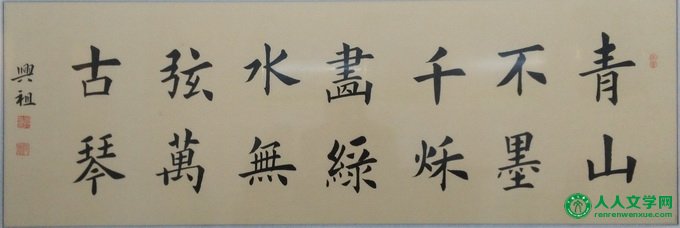 青山
不墨
千秌
畫綠
水無
弦萬
古琴
興祖
人人文学网
renrenwenxue.com